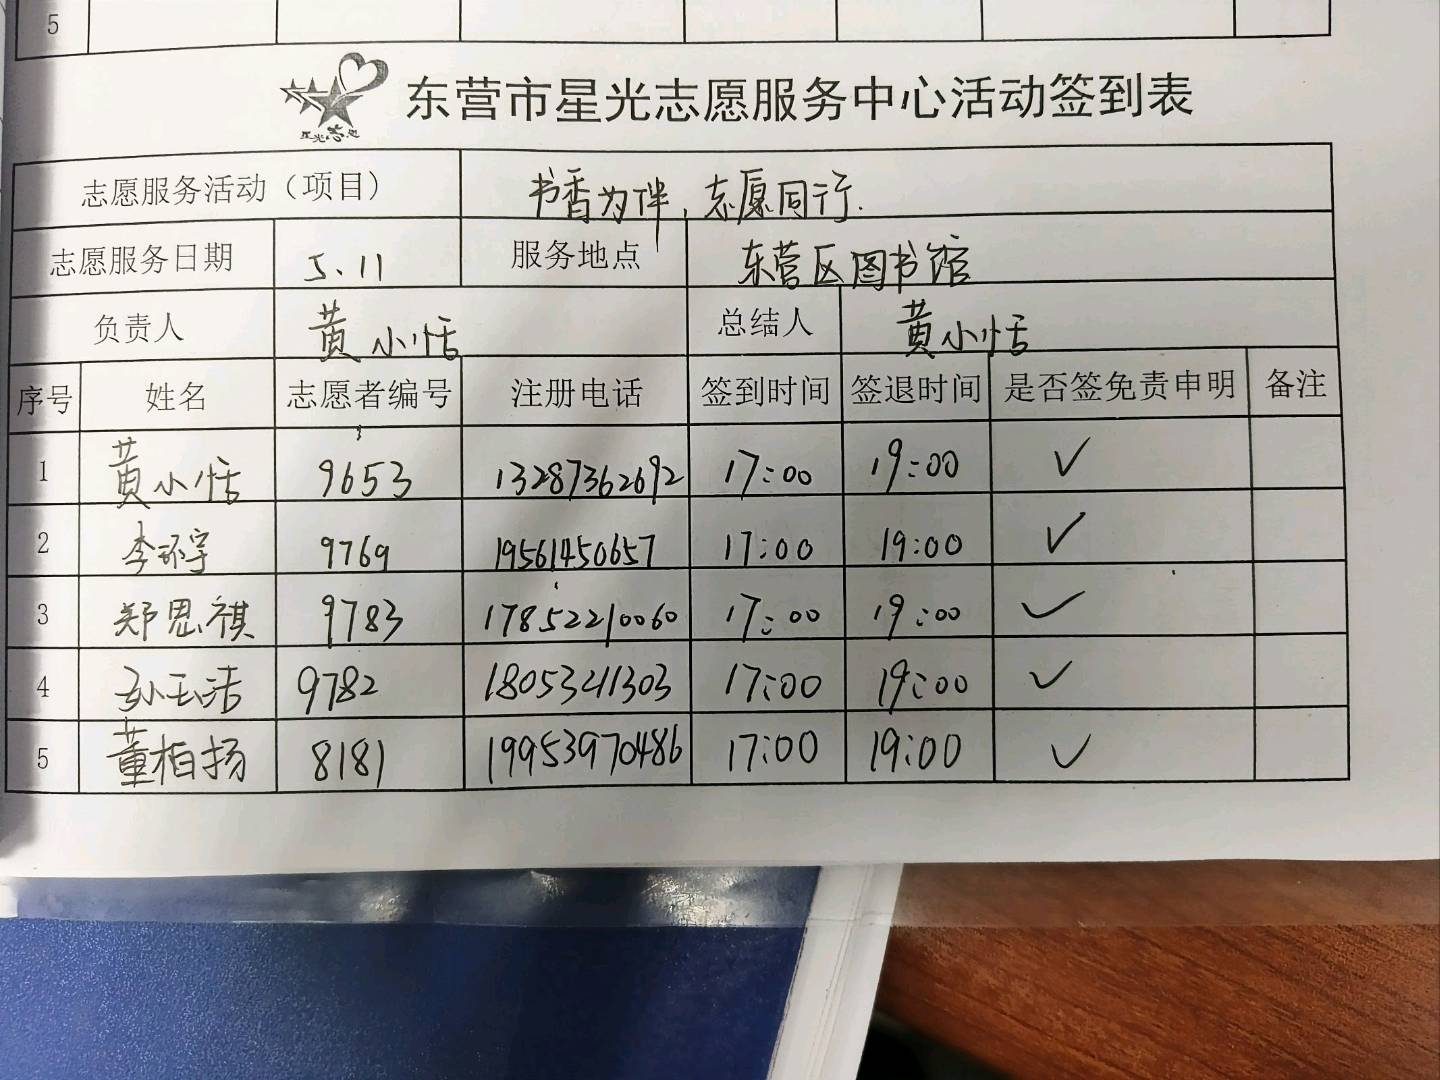 5
星光志愿
东营市星光志愿服务中心活动签到表
志愿服务活动（项目） 书香为伴，志愿同行.
志愿服务日期 5.11 服务地点 东营区图书馆
负责人 黄小恬 总结人 黄小恬
序号 姓名 志愿者编号 注册电话 签到时间 签退时间 是否签免责申明 备注
1 黄小恬 9653 13287362692 17:00 19:00 ✓
2 李环宇 9769 19561450657 17:00 19:00 ✓
3 郑思祺 9783 17852210060 17:00 19:00 ✓
4 孙玉洁 9782 18053241303 17:00 19:00 ✓
5 董柏扬 8181 19953970486 17:00 19:00 ✓